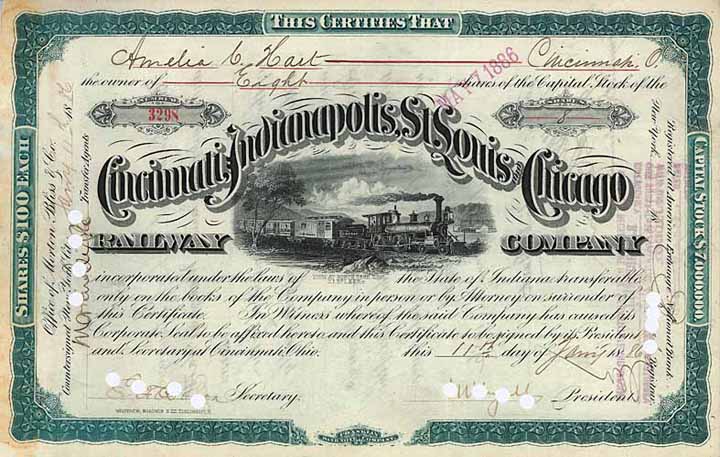 THIS CERTIFIES THAT
Amelia C. Hart Cincinnati, O.
the owner of Eight shares of the Capital Stock of the
MAY 7 1886
NUMBER
3298
SHARES
8
Cincinnati, Indianapolis, St. Louis and Chicago
RAILWAY COMPANY
incorporated under the laws of the State of Indiana transferable
only on the books of the Company in person or by Attorney on surrender of
this Certificate. In Witness whereof the said Company has caused its
Corporate Seal to be affixed hereto and this Certificate to be signed by its President
and Secretary at Cincinnati, Ohio. this 11th day of Jany 1886
Secretary. President.
SHARES $100 EACH
CAPITAL STOCK $7,000,000
Countersigned New York City
Office of Morton Bliss & Co.
Transfer Agents
Registered at American Exchange National Bank.
New York
Registrar